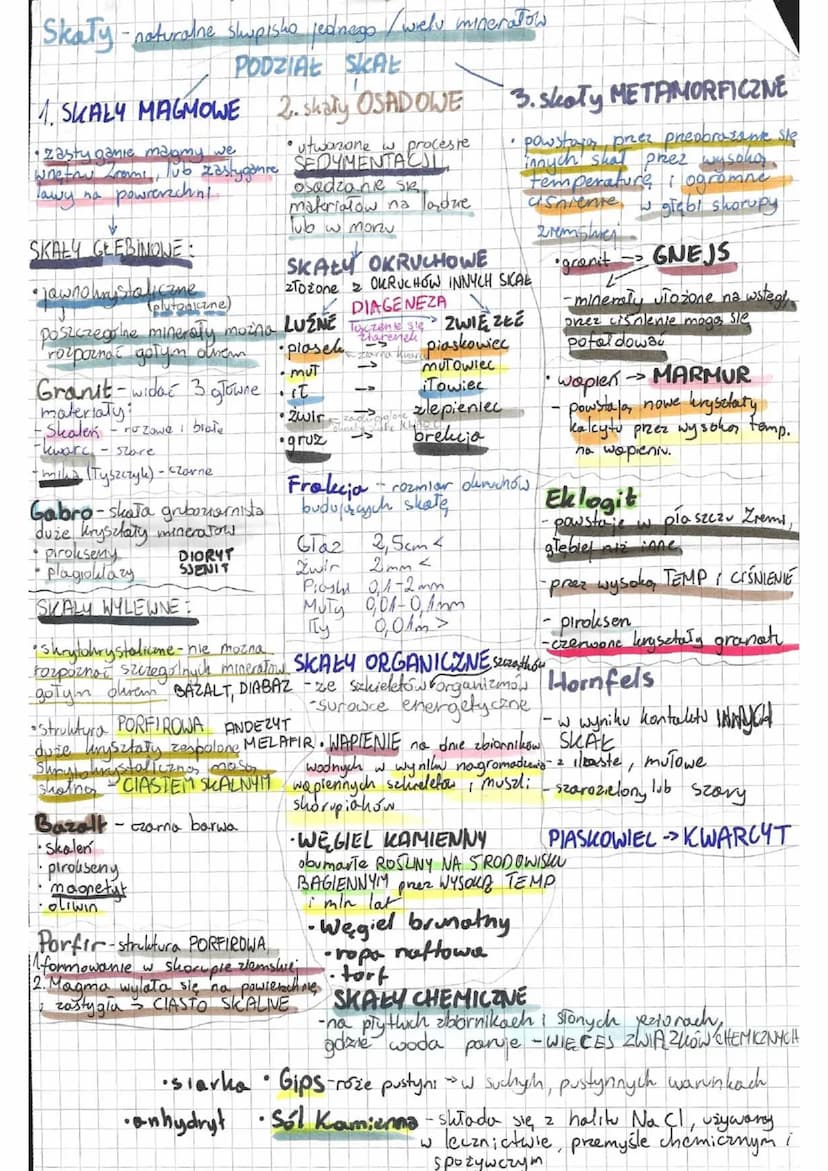 Skały - naturalne skupisko jednego / wielu minerałów
PODZIAŁ SKAŁ
1. SKAŁY MAGMOWE
• zastyganie magmy we
wnętrzu Ziemi, lub zastyganie
lawy na powierzchni
SKAŁY GŁĘBINOWE:
• jawnokrystaliczne
(plutoniczne)
poszczególne minerały można
rozpoznać gołym okiem
Granit - widać 3 główne
materiały:
- Skaleń - różowe i białe
- kwarc - szare
- mika (Łyszczyk) - czarne
Gabro - skała gruboziarnista
duże kryształy minerałów
• pirokseny
• plagioklazy
DIORYT
SJENIT
SKAŁY WYLEWNE:
• skrytokrystaliczne - nie można
rozpoznać szczególnych minerałów
gołym okiem BAZALT, DIABAZ
• struktura PORFIROWA ANDEZYT
duże kryształy zespolone MELAFIR
skrytokrystaliczną masą
skalną - CIASTEM SKALNYM
Bazalt - czarna barwa
• skaleń
• pirokseny
• magnetyt
• oliwin
Porfir - struktura PORFIROWA
1. formowanie w skorupie ziemskiej
2. Magma wylała się na powierzchnię
i zastygła → CIASTO SKALNE
2. skały OSADOWE
• utworzone w procesie
SEDYMENTACJI,
osadzanie się
materiałów na lądzie
lub w morzu
SKAŁY OKRUCHOWE
złożone z OKRUCHÓW INNYCH SKAŁ
DIAGENEZA
LUŹNE łączenie się ziarenek ZWIĘZŁE
• piasek → piaskowiec
← ziarna kwarcu
• muł → mułowiec
• ił → iłowiec
• żwir → zlepieniec
• gruz → brekcja
Frakcja - rozmiar okruchów
budujących skałę
Głaz 2,5cm <
Żwir 2mm <
Piaski 0,1-2mm
Muły 0,01-0,1mm
Iły 0,01m >
SKAŁY ORGANICZNE szczątków
- ze szkieletów organizmów
- surowce energetyczne
• WAPIENIE na dnie zbiorników
wodnych w wyniku nagromadzenia
wapiennych szkieletów i muszli
skorupiaków
• WĘGIEL KAMIENNY
obumarłe ROŚLINY NA ŚRODOWISKU
BAGIENNYM przez WYSOKĄ TEMP
i mln lat
• Węgiel brunatny
• ropa naftowa
• torf
3. skały METAMORFICZNE
• powstają przez przeobrażanie się
innych skał przez wysoką
temperaturę i ogromne
ciśnienie w głębi skorupy
ziemskiej
• granit → GNEJS
- minerały ułożone na wstęgi,
przez ciśnienie mogą się
pofałdować
• wapień → MARMUR
- powstają nowe kryształy
kalcytu przez wysoką temp.
na wapieniu.
Eklogit
- powstaje w płaszczu Ziemi,
głębiej niż inne
- przez wysoką TEMP i CIŚNIENIE
- piroksen
- czerwone kryształy granatu
Hornfels
- w wyniku kontaktu INNYCH
SKAŁ
- z ilaste, mułowe
- szarozielony lub szary
PIASKOWIEC → KWARCYT
SKAŁY CHEMICZNE
- na płytkich zbiornikach i słonych jeziorach,
gdzie woda paruje - WIĘCEJ ZWIĄZKÓW CHEMICZNYCH
• siarka • Gips - róże pustyni → w suchych, pustynnych warunkach
• anhydryt • Sól Kamienna - składa się z halitu NaCl, używany
w lecznictwie, przemyśle chemicznym i
spożywczym